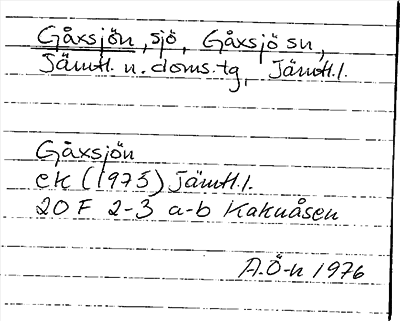 Gåxsjön, sjö, Gåxsjö sn,
Jämtl. n. doms. tg, Jämtl. l.
Gåxsjön
ek (1975) Jämtl. l.
20 F 2-3 a-b Kakuåsen
A.Ö-n 1976